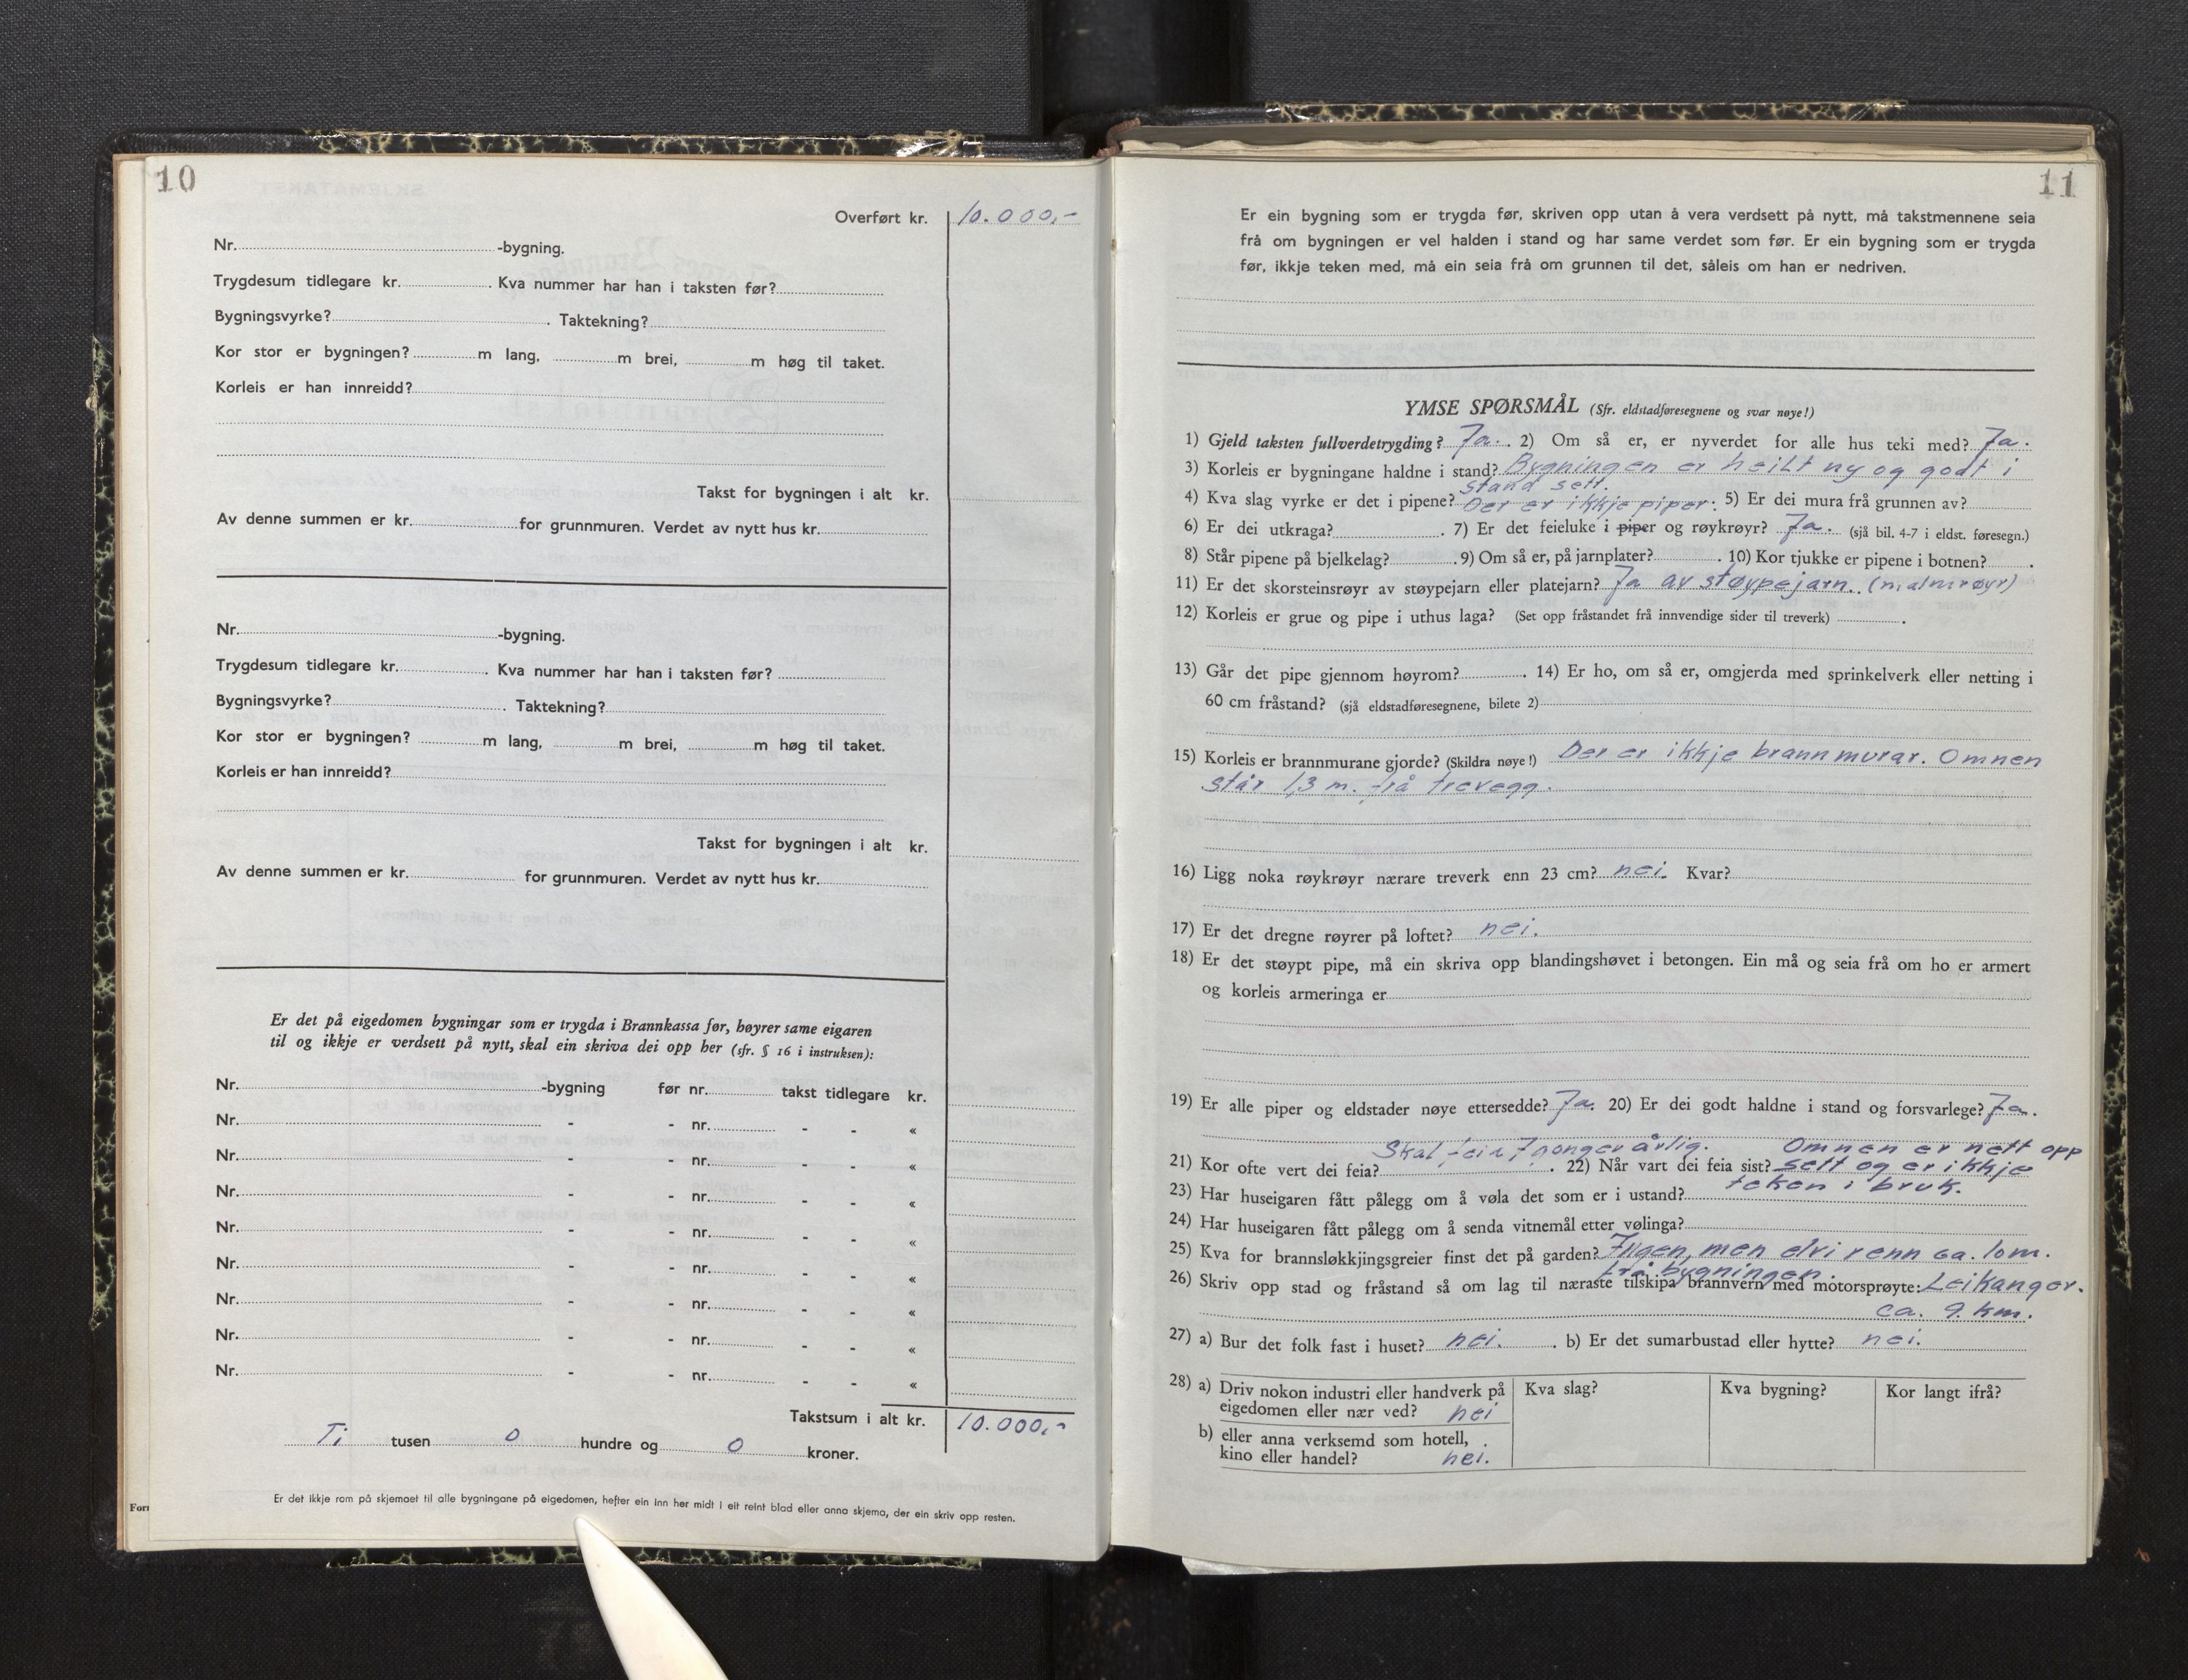 10
Overført kr. 10.000,-
Nr. -bygning.
Trygdesum tidlegare kr. . Kva nummer har han i taksten før?
Bygningsvyrke? . Taktekning?
Kor stor er bygningen? m lang, m brei, m høg til taket.
Korleis er han innreidd?
Takst for bygningen i alt kr.
Av denne summen er kr. for grunnmuren. Verdet av nytt hus kr.
Nr. -bygning.
Trygdesum tidlegare kr. . Kva nummer har han i taksten før?
Bygningsvyrke? . Taktekning?
Kor stor er bygningen? m lang, m brei, m høg til taket.
Korleis er han innreidd?
Takst for bygningen i alt kr.
Av denne summen er kr. for grunnmuren. Verdet av nytt hus kr.
Er det på eigedomen bygningar som er trygda i Brannkassa før, høyrer same eigaren
til og ikkje er verdsett på nytt, skal ein skriva dei opp her (sfr. § 16 i instruksen):
Nr. -bygning før nr. takst tidlegare kr.
Nr. - - nr. - - «
Nr. - - nr. - - «
Nr. - - nr. - - «
Nr. - - nr. - - «
Nr. - - nr. - - «
Nr. - - nr. - - «
Nr. - - nr. - - «
Nr. - - nr. - - «
Takstsum i alt kr. 10.000,-
Ti tusen 0 hundre og 0 kroner.
Er det ikkje rom på skjemaet til alle bygningane på eigedomen, hefter ein inn her midt i eit reint blad eller anna skjema, der ein skriv opp resten.
11
Er ein bygning som er trygda før, skriven opp utan å vera verdsett på nytt, må takstmennene seia
frå om bygningen er vel halden i stand og har same verdet som før. Er ein bygning som er trygda
før, ikkje teken med, må ein seia frå om grunnen til det, såleis om han er nedriven.
YMSE SPØRSMÅL (Sfr. eldstadføresegnene og svar nøye!)
1) Gjeld taksten fullverdetrygding? Ja. 2) Om så er, er nyverdet for alle hus teki med? Ja.
3) Korleis er bygningane haldne i stand? Bygningen er heilt ny og godt i
stand sett.
4) Kva slag vyrke er det i pipene? Der er ikkje piper. 5) Er dei mura frå grunnen av?
6) Er dei utkraga? . 7) Er det feieluke i piper og røykrøyr? Ja. (sjå bil. 4-7 i eldst. føresegn.)
8) Står pipene på bjelkelag? . 9) Om så er, på jarnplater? . 10) Kor tjukke er pipene i botnen? .
11) Er det skorsteinsrøyr av støypejarn eller platejarn? Ja av støypejarn. (malmrøyr)
12) Korleis er grue og pipe i uthus laga? (Set opp fråstandet frå innvendige sider til treverk) .
13) Går det pipe gjennom høyrom? . 14) Er ho, om så er, omgjerda med sprinkelverk eller netting i
60 cm fråstand? (sjå eldstadføresegnene, bilete 2)
15) Korleis er brannmurane gjorde? (Skildra nøye!) Der er ikkje brannmurar. Omnen
står 1,3 m. frå trevegg.
16) Ligg noka røykrøyr nærare treverk enn 23 cm? nei. Kvar?
17) Er det dregne røyrer på loftet? nei.
18) Er det støypt pipe, må ein skriva opp blandingshøvet i betongen. Ein må og seia frå om ho er armert
og korleis armeringa er
19) Er alle piper og eldstader nøye ettersedde? Ja. 20) Er dei godt haldne i stand og forsvarlege? Ja.
Skal gonger årlig. Omnen er nett opp
21) Kor ofte vert dei feia? . 22) Når vart dei feia sist? sett og er ikkje
teken i bruk.
23) Har huseigaren fått pålegg om å vøla det som er i ustand?
24) Har huseigaren fått pålegg om å senda vitnemål etter vølinga?
25) Kva for brannsløkkjingsgreier finst det på garden? Ingen, men elvi renn ca. 10 m.
frå bygningen.
26) Skriv opp stad og fråstand så om lag til næraste tilskipa brannvern med motorsprøyte: Leikanger.
ca. 9 km.
27) a) Bur det folk fast i huset? nei. . b) Er det sumarbustad eller hytte? nei.
28) a) Driv nokon industri eller handverk på eigedomen eller nær ved? nei
Kva slag? Kva bygning? Kor langt ifrå?
b) eller anna verksemd som hotell,
kino eller handel? nei.